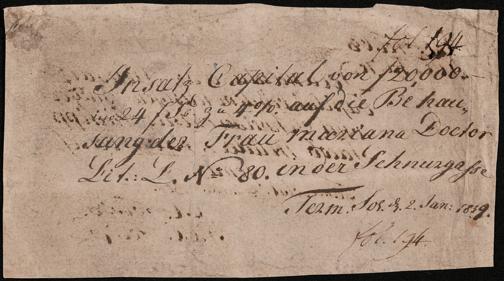 fol. 194
Insatz-Capital von f 20000.-
im 24 f Fß zu 4 p% auf die Behau,
sung der Frau mariana Doctor
Lit: L. No 80. in der Schnurgasse
Term. Sol. d. 2. Jan: 1819.
fol. 194.